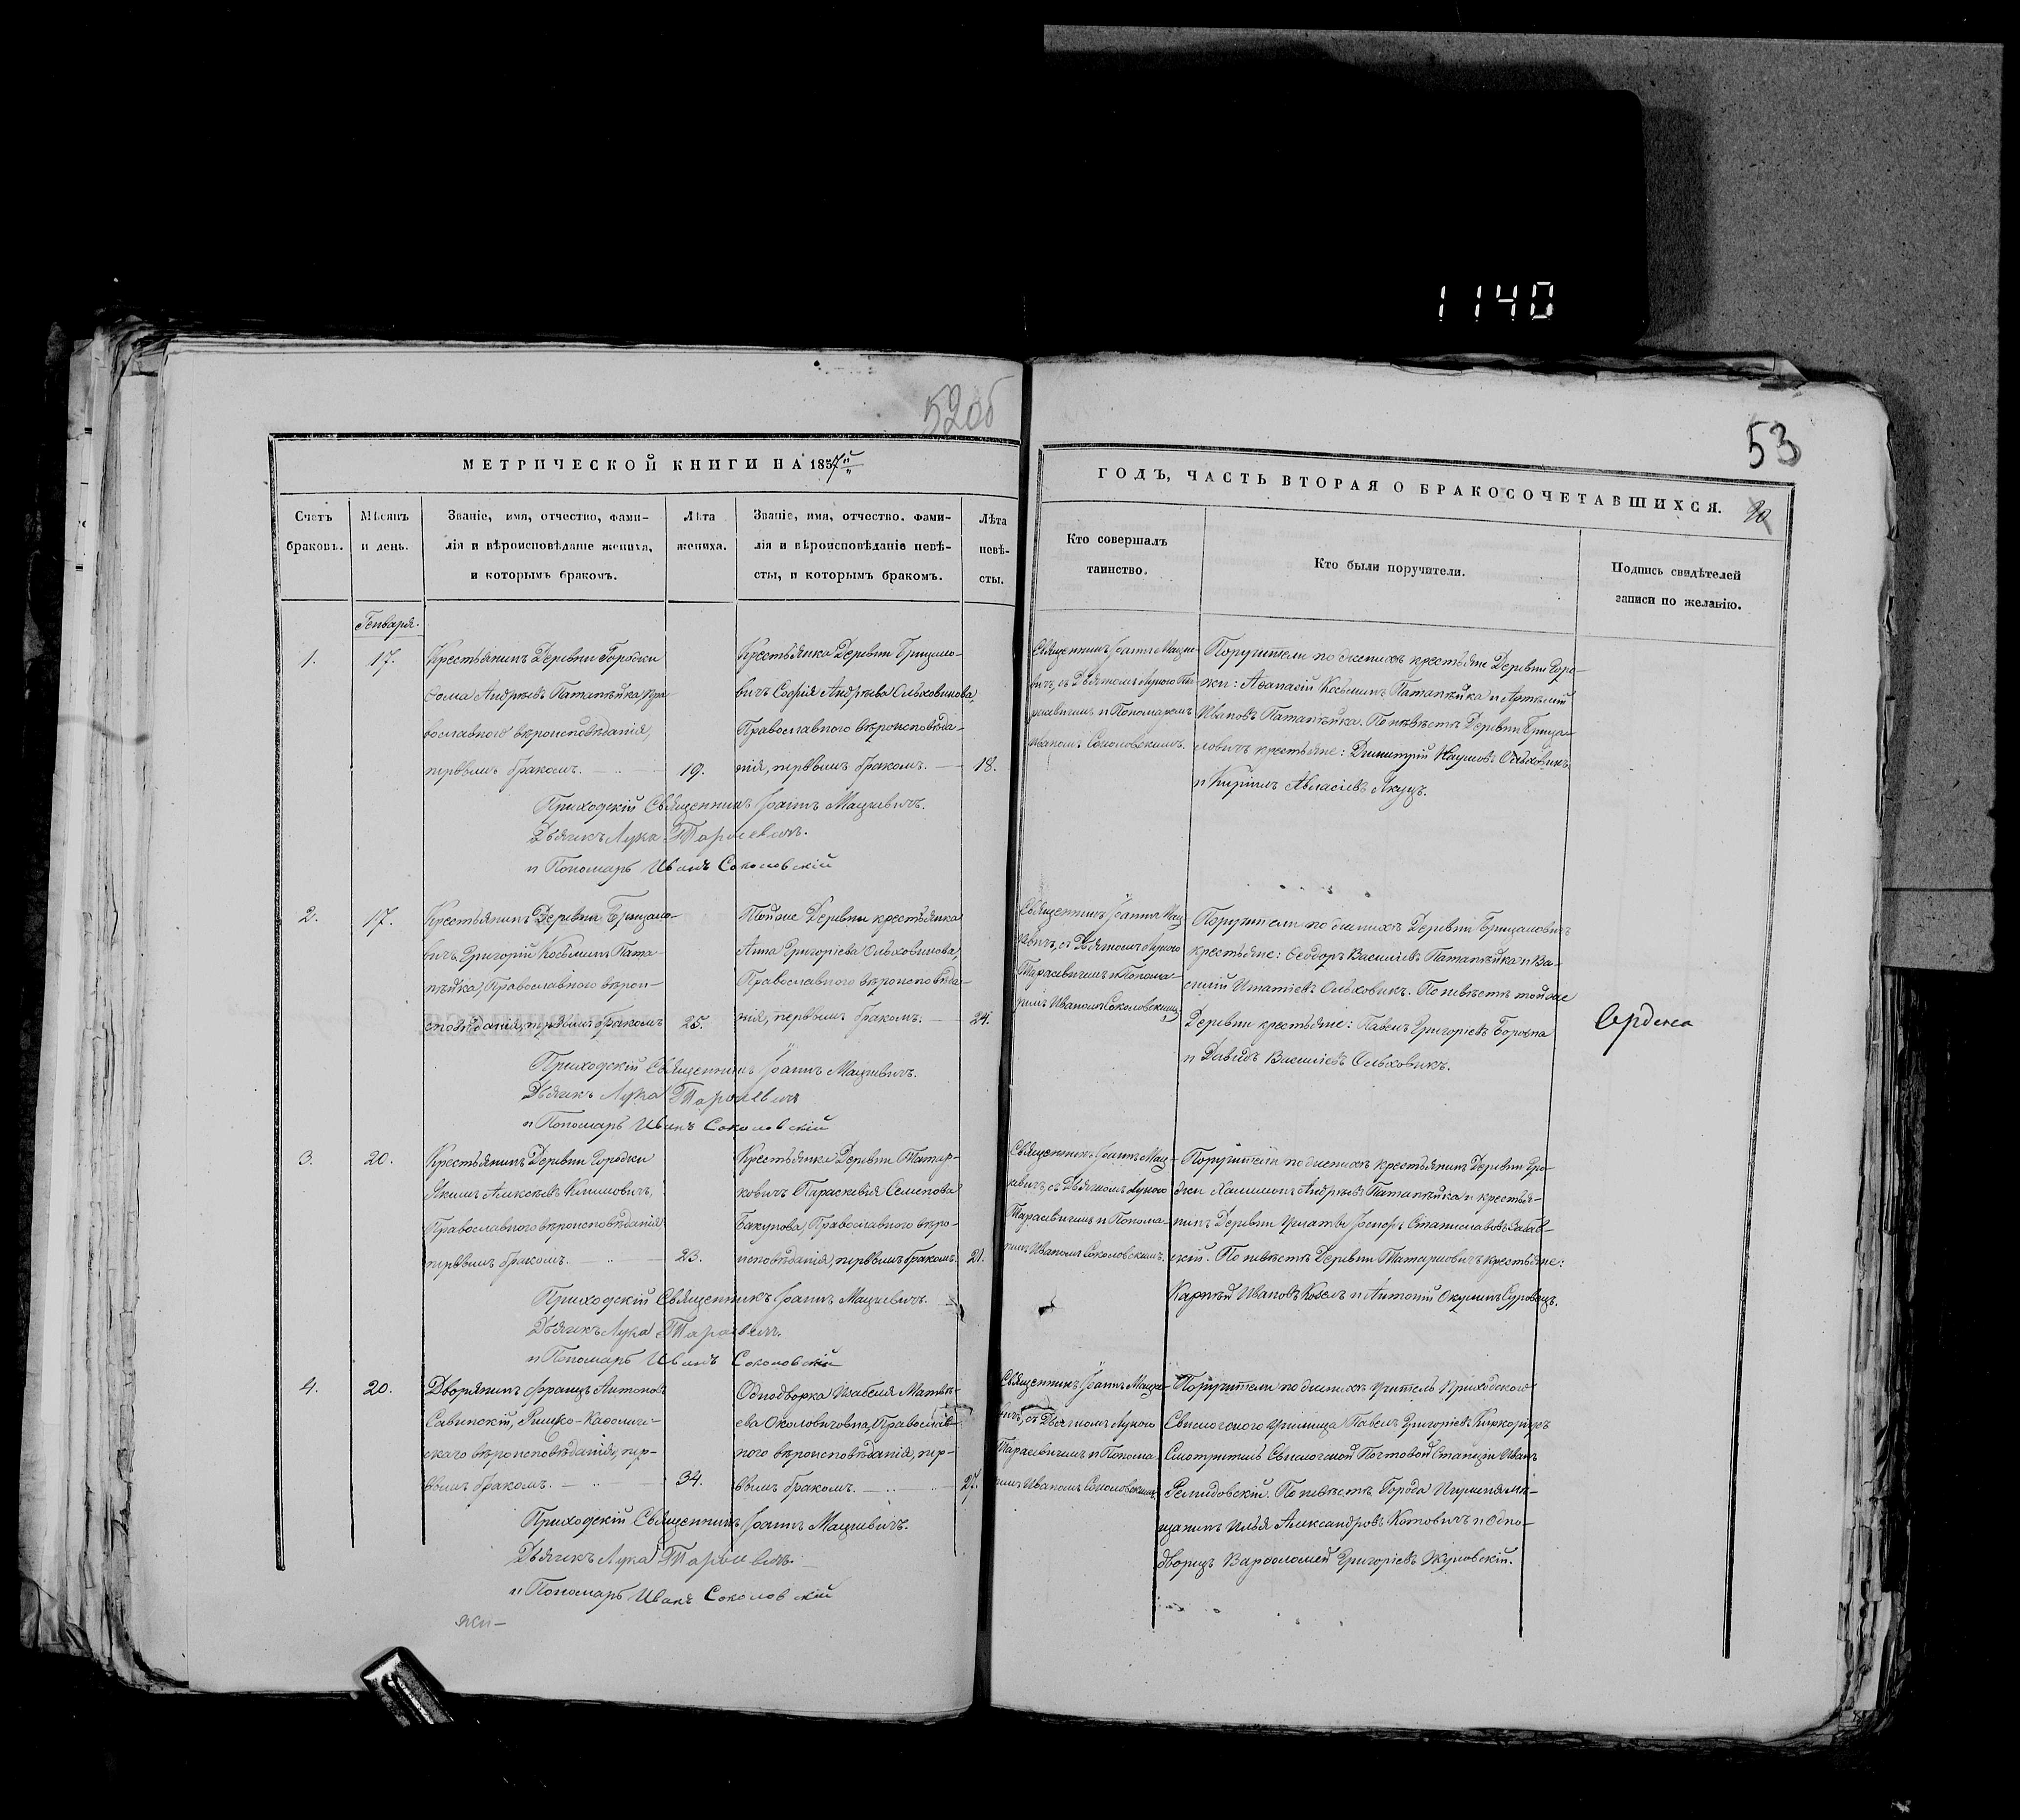 1140
52об
53
МЕТРИЧЕСКОЙ КНИГИ НА 1857й
ГОДЪ, ЧАСТЬ ВТОРАЯ О БРАКОСОЧЕТАВШИХСЯ.
20
Счетъ
браковъ.
Мѣсяцъ
и день.
Званіе, имя, отчество, фами-
лія и вѣроисповѣданіе жениха,
и которымъ бракомъ.
Лѣта
жениха.
Званіе, имя, отчество. фами-
лія и вѣроисповѣданіе невѣ-
сты, и которымъ бракомъ.
Лѣта
невѣ-
сты.
Кто совершалъ
таинство.
Кто были поручители.
Подпись свидѣтелей
записи по желанію.
Генваря.
1.
17.
Крестьянинъ Деревни Городки
Ѳома Андреевъ Патапѣйка, Пра-
вославного вѣроисповѣданія,
первымъ бракомъ.
19.
Крестьянка Деревни Брицало-
вичъ Софія Андреева Ольховикова,
Православного вѣроисповѣда-
нія, первымъ бракомъ.
18.
Священникъ Іоаннъ Мацке-
вичъ, съ Дьячкомъ Лукою Та-
расевичемъ и Пономаремъ
Иваномъ Соколовскимъ.
Поручители по женихѣ крестьяне Деревни Горо-
жи: Аѳанасій Косьминъ Патапѣйка и Артемій
Ивановъ Патапѣйка. По невѣстѣ Деревни Брица-
ловичъ крестьяне: Димитрій Наумовъ Ольховикъ
и Кирилъ Авласіевъ Якуцъ.
Приходскій Священникъ Іоаннъ Мацкевичъ.
Дьячекъ Лука Тарасевичъ.
и Пономарь Иванъ Соколовскій
2.
17.
Крестьянинъ Деревни Брицало-
вичъ Григорій Косьминъ Пата-
пѣйка, Православного вѣрои-
сповѣданія, первымъ бракомъ
25.
Тойже Деревни крестьянка
Анна Григоріева Ольховикова,
Православного вѣроисповѣда-
нія, первымъ бракомъ.
24.
Священникъ Іоаннъ Мац-
кевичъ, съ Дьячкомъ Лукою
Тарасевичемъ и Понома-
ремъ Иваномъ Соколовскимъ
Поручители по женихѣ Деревни Брицаловичъ
крестьяне: Ѳеодоръ Васильевъ Патапѣйка и Ва-
силій Игнатіевъ Ольховикъ. По невѣстѣ тойже
Деревни крестьяне: Павелъ Григоріевъ
и Давидъ Васильевъ Ольховикъ.
Приходскій Священникъ Іоаннъ Мацкевичъ.
Дьячекъ Лука Тарасевичъ
и Пономарь Иванъ Соколовскій
3.
20.
Крестьянинъ Деревни Городки
Якимъ Алексѣевъ Климовичъ,
Православного вѣроисповѣданія
первымъ бракомъ.
23.
Крестьянка Деревни Татар-
ковичъ Параскевія Семенова
Бакунова, Православного вѣро-
исповѣданія, первымъ бракомъ.
21.
Священникъ Іоаннъ Мац-
кевичъ, съ Дьячкомъ Лукою
Тарасевичемъ и Понома-
ремъ Иваномъ Соколовскимъ.
Поручители по женихѣ крестьянинъ Деревни Горо-
Андреевъ Патапѣйка и крестья-
нинъ Деревни Іосифъ Станиславовъ
скій. По невѣстѣ Деревни Татарковичъ крестьяне:
Карпѣй Ивановъ Козелъ и Антоній
Приходскій Священникъ Іоаннъ Мацкевичъ.
Дьячекъ Лука Тарасевичъ.
и Пономарь Иванъ Соколовскій
4.
20.
Дворянинъ Францъ Антоновъ
Савинскій, Римско-Католиче-
скаго вѣроисповѣданія, пер-
вымъ бракомъ.
34.
Однодворка Изабелла Матвѣ-
ева Околовичовна, Православ-
ного вѣроисповѣданія, пер-
вымъ бракомъ.
27.
Священникъ Іоаннъ Мацке-
вичъ, съ Дьячкомъ Лукою
Тарасевичемъ и Понома-
ремъ Иваномъ Соколовскимъ
Поручители по женихѣ Учитель Приходского
Свислочского Училища Павелъ Григоріевъ
Смотритель Свислочской Почтовой Станціи Иванъ
По невѣстѣ Города Игуменя мѣ-
щанинъ Илья Александровъ Котовичъ и Одно-
дворецъ Варѳоломей Григоріевъ Жуковскій.
Приходскій Священникъ Іоаннъ Мацкевичъ.
Дьячекъ Лука Тарасевичъ.
и Пономарь Иванъ Соколовскій